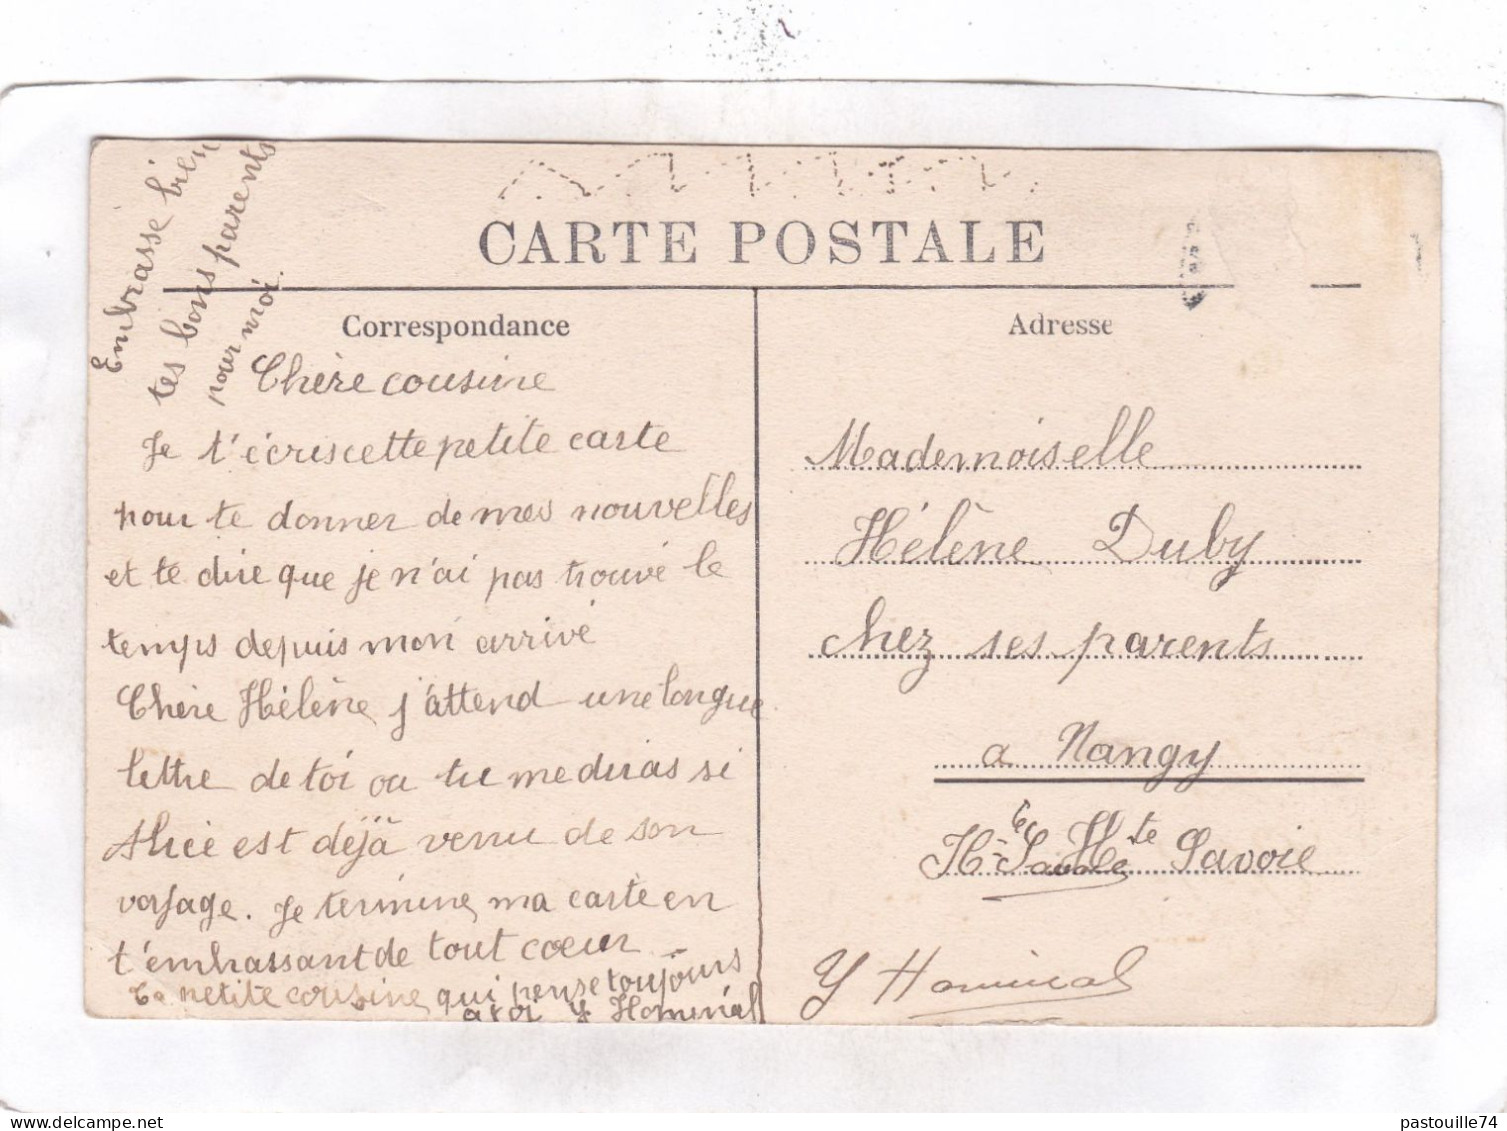 Embrasse bien
tes bons parents
pour moi.
CARTE POSTALE
Correspondance
Chère cousine
Je t'écris cette petite carte
pour te donner de mes nouvelles
et te dire que je n'ai pas trouvé le
temps depuis mon arrivé
Chère Hélène j'attend une longue
lettre de toi ou tu me diras si
Alice est déjà venu de son
voyage. Je termine ma carte en
t'embrassant de tout coeur
ta petite cousine qui pense toujours
a toi Y Hominal
Adresse
Mademoiselle
Hélène Duby
chez ses parents
a Nangy
Hte Savoie
Y Hominal
pastouille74